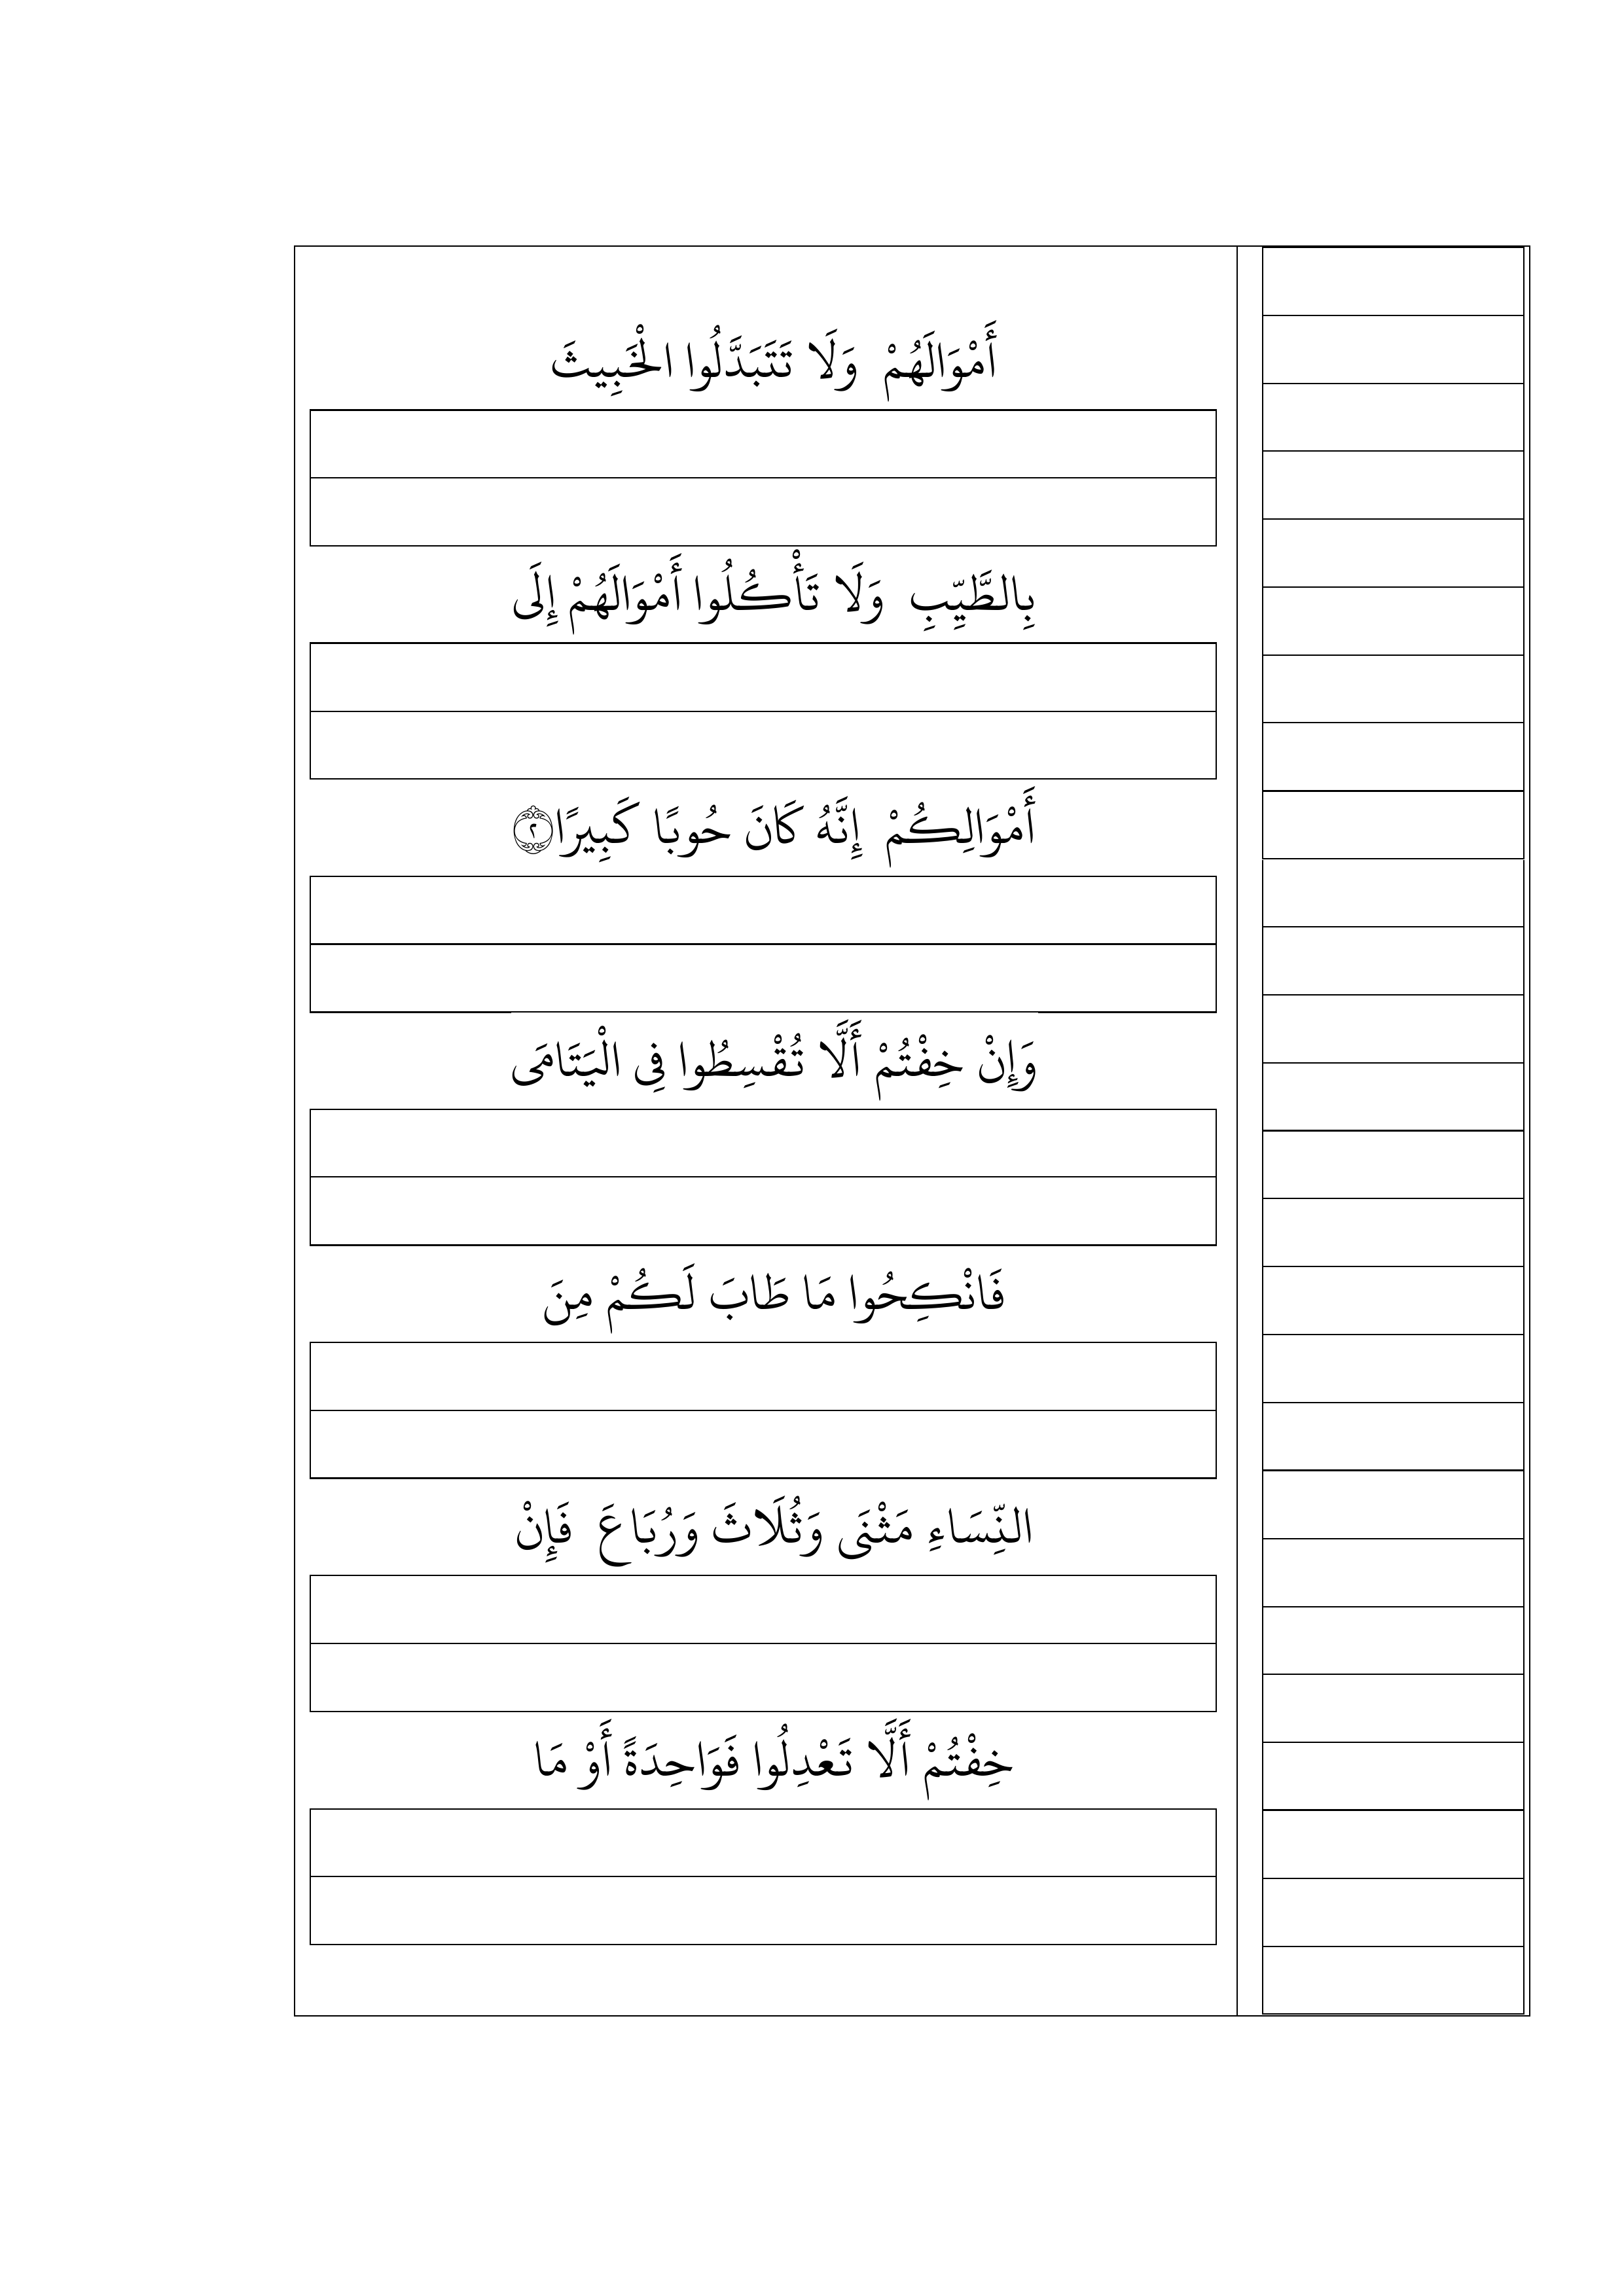 أَمْوَالَهُمْ وَلَا تَتَبَدَّلُوا الْخَبِيثَ
بِالطَّيِّبِ وَلَا تَأْكُلُوا أَمْوَالَهُمْ إِلَى
أَمْوَالِكُمْ إِنَّهُ كَانَ حُوبًا كَبِيرًا ۝٢
وَإِنْ خِفْتُمْ أَلَّا تُقْسِطُوا فِي الْيَتَامَى
فَانْكِحُوا مَا طَابَ لَكُمْ مِنَ
النِّسَاءِ مَثْنَى وَثُلَاثَ وَرُبَاعَ فَإِنْ
خِفْتُمْ أَلَّا تَعْدِلُوا فَوَاحِدَةً أَوْ مَا